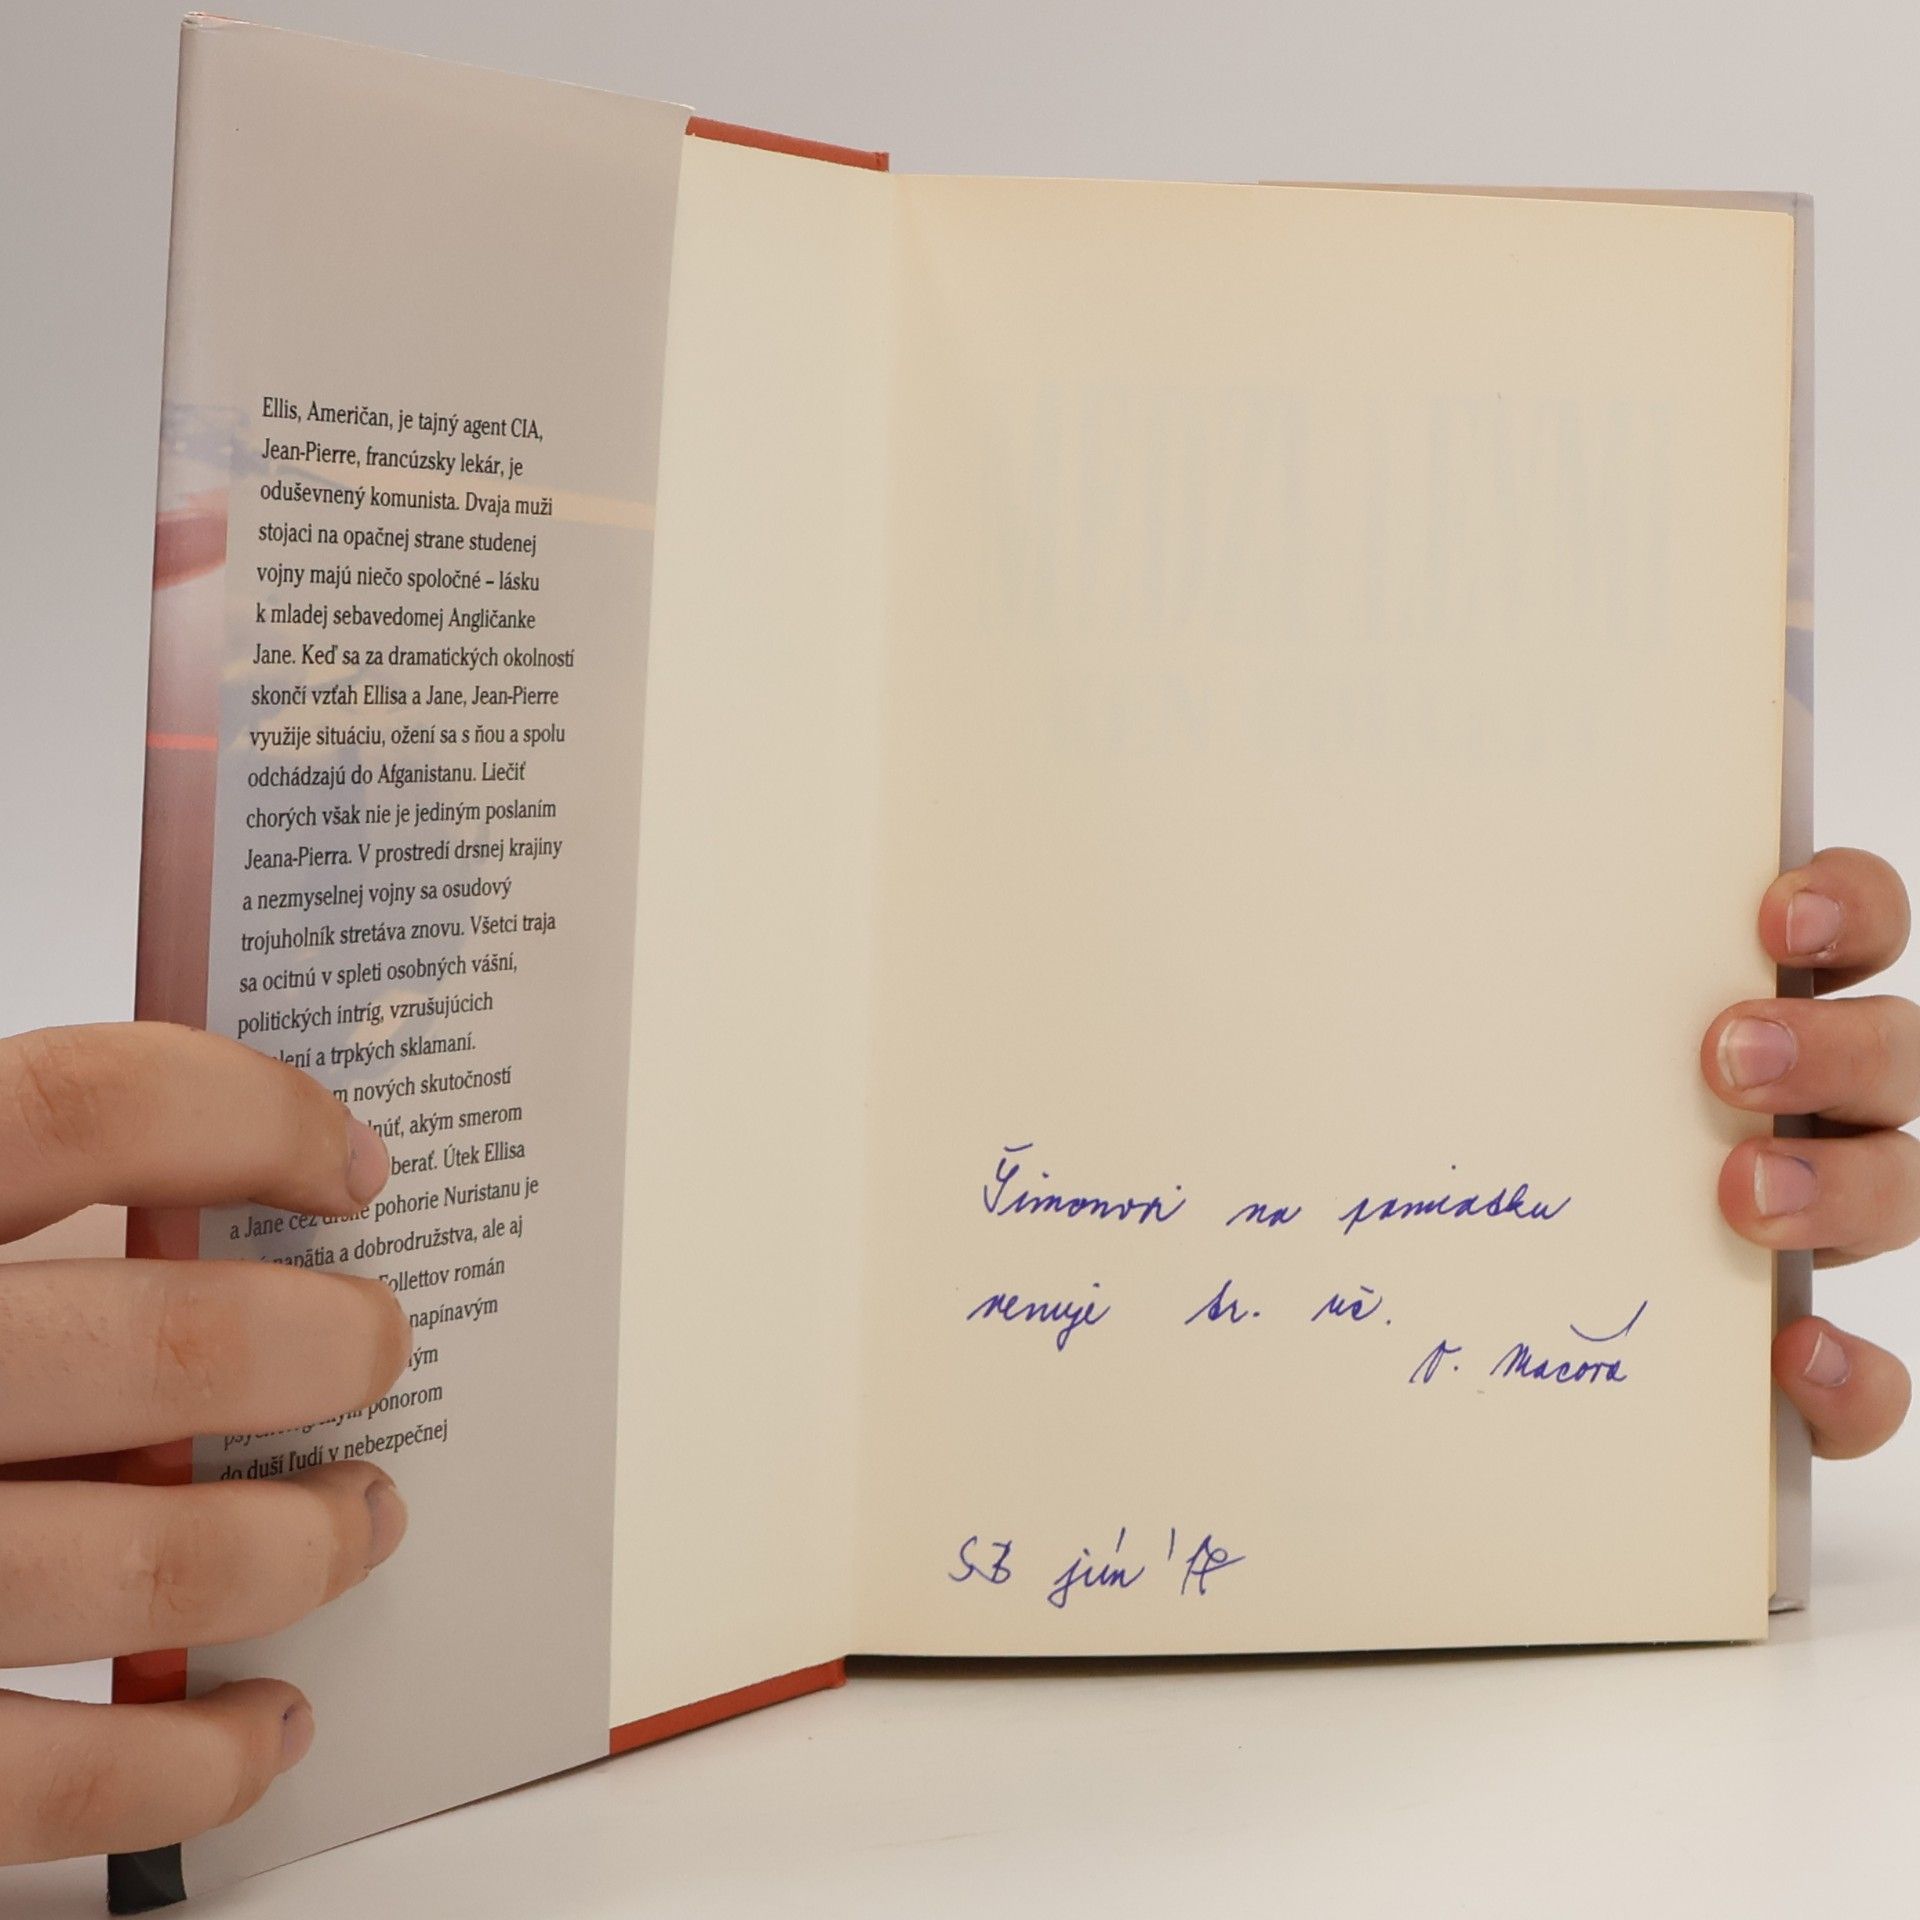 Ellis, Američan, je tajný agent CIA,
Jean-Pierre, francúzsky lekár, je
oduševnený komunista. Dvaja muži
stojaci na opačnej strane studenej
vojny majú niečo spoločné – lásku
k mladej sebavedomej Angličanke
Jane. Keď sa za dramatických okolností
skončí vzťah Ellisa a Jane, Jean-Pierre
využije situáciu, ožení sa s ňou a spolu
odchádzajú do Afganistanu. Liečiť
chorých však nie je jediným poslaním
Jeana-Pierra. V prostredí drsnej krajiny
a nezmyselnej vojny sa osudový
trojuholník stretáva znovu. Všetci traja
sa ocitnú v spleti osobných vášní,
politických intríg, vzrušujúcich
a trpkých sklamaní.
nových skutočností
akým smerom
Útek Ellisa
a Jane cez drsné pohorie Nuristanu je
napätia a dobrodružstva, ale aj
Follettov román
napínavým
ponorom
do duší ľudí v nebezpečnej
Šimonovi na pamiatku
venuje tr. uč.
V. Macová
jún